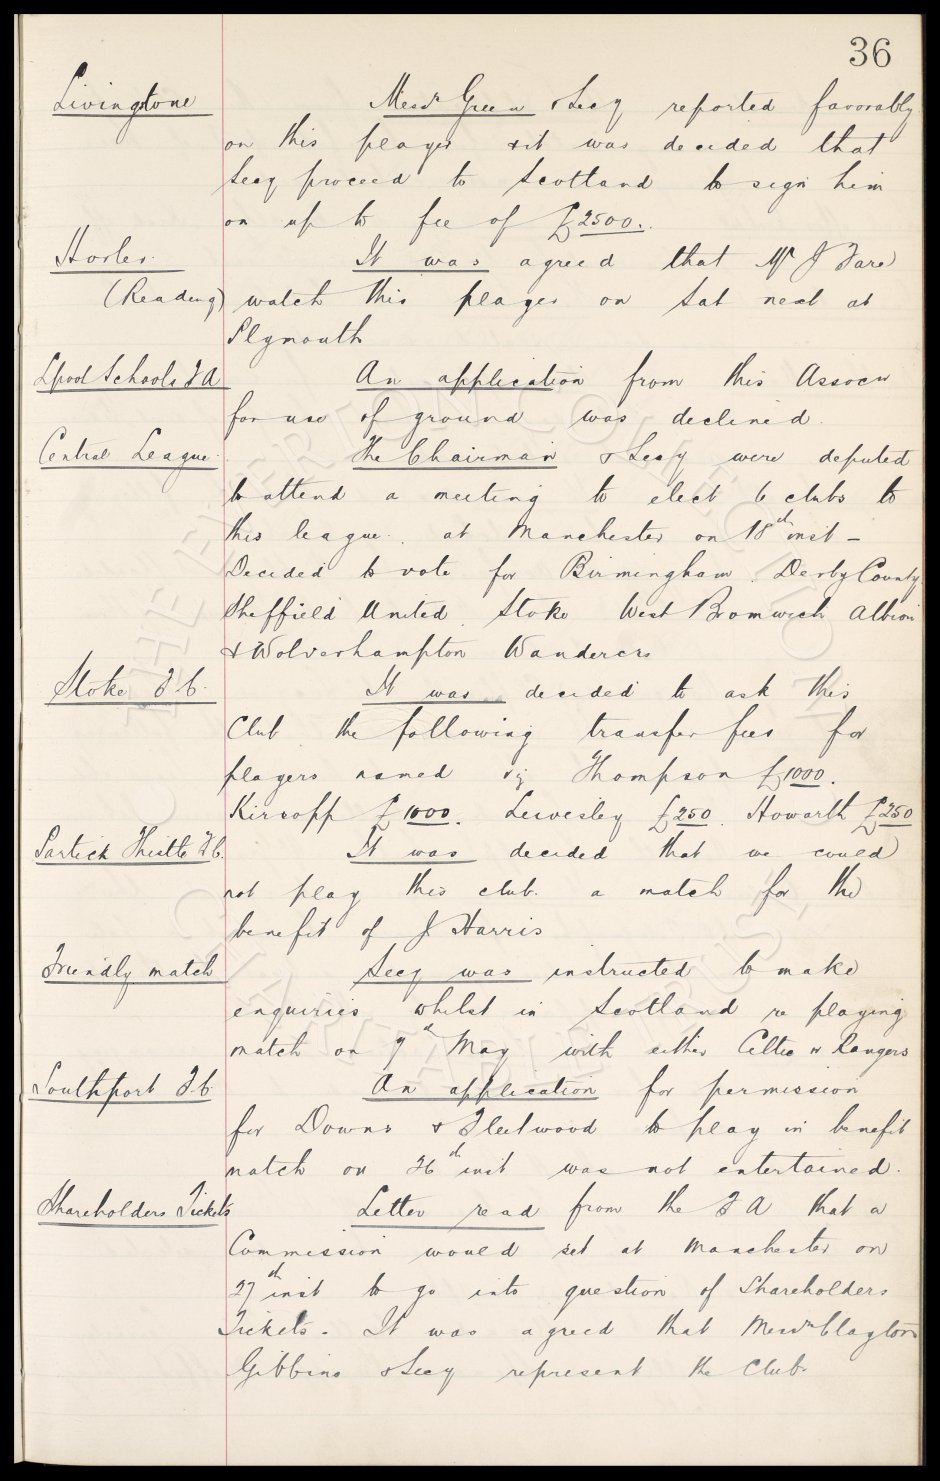 36
Livingstone
Messrs Green & Secy reported favorably
on this player & it was decided that
Secy proceed to Scotland to sign him
on up to fee of £2500.
Horler.
It was agreed that Mr J Fare
(Reading)
watch this player on Sat next at
Plymouth
Lpool Schools F A
An application from this Assocn
for use of ground was declined.
Central League.
The Chairman & Secy were deputed
to attend a meeting to elect 6 clubs to
this league. at Manchester on 18th inst –
Decided to vote for Birmingham. Derby County
Sheffield United. Stoke West Bromwich Albion
& Wolverhampton Wanderers
Stoke F C.
It was decided to ask this
Club the following transfer fees for
players named viz Thompson £1000.
Kirsopp £1000. Lewis £250. Howarth £250
Partick Thistle F C.
It was decided that we could
not play this club. a match for the
benefit of J Harris
Friendly match
Secy was instructed to make
enquiries whilst in Scotland re playing
match on 7th May with either Celtic or Rangers
Southport F C
An application for permission
for Downs & Fleetwood to play in benefit
match on 26th inst was not entertained.
Shareholders Tickets
Letter read from the F A that a
Commission would sit at Manchester on
27th inst to go into question of Shareholders
Tickets. It was agreed that Messrs Clayton
Gibbins & Secy represent the Club.
THE EVERTON COLLECTION
CHARITABLE TRUST